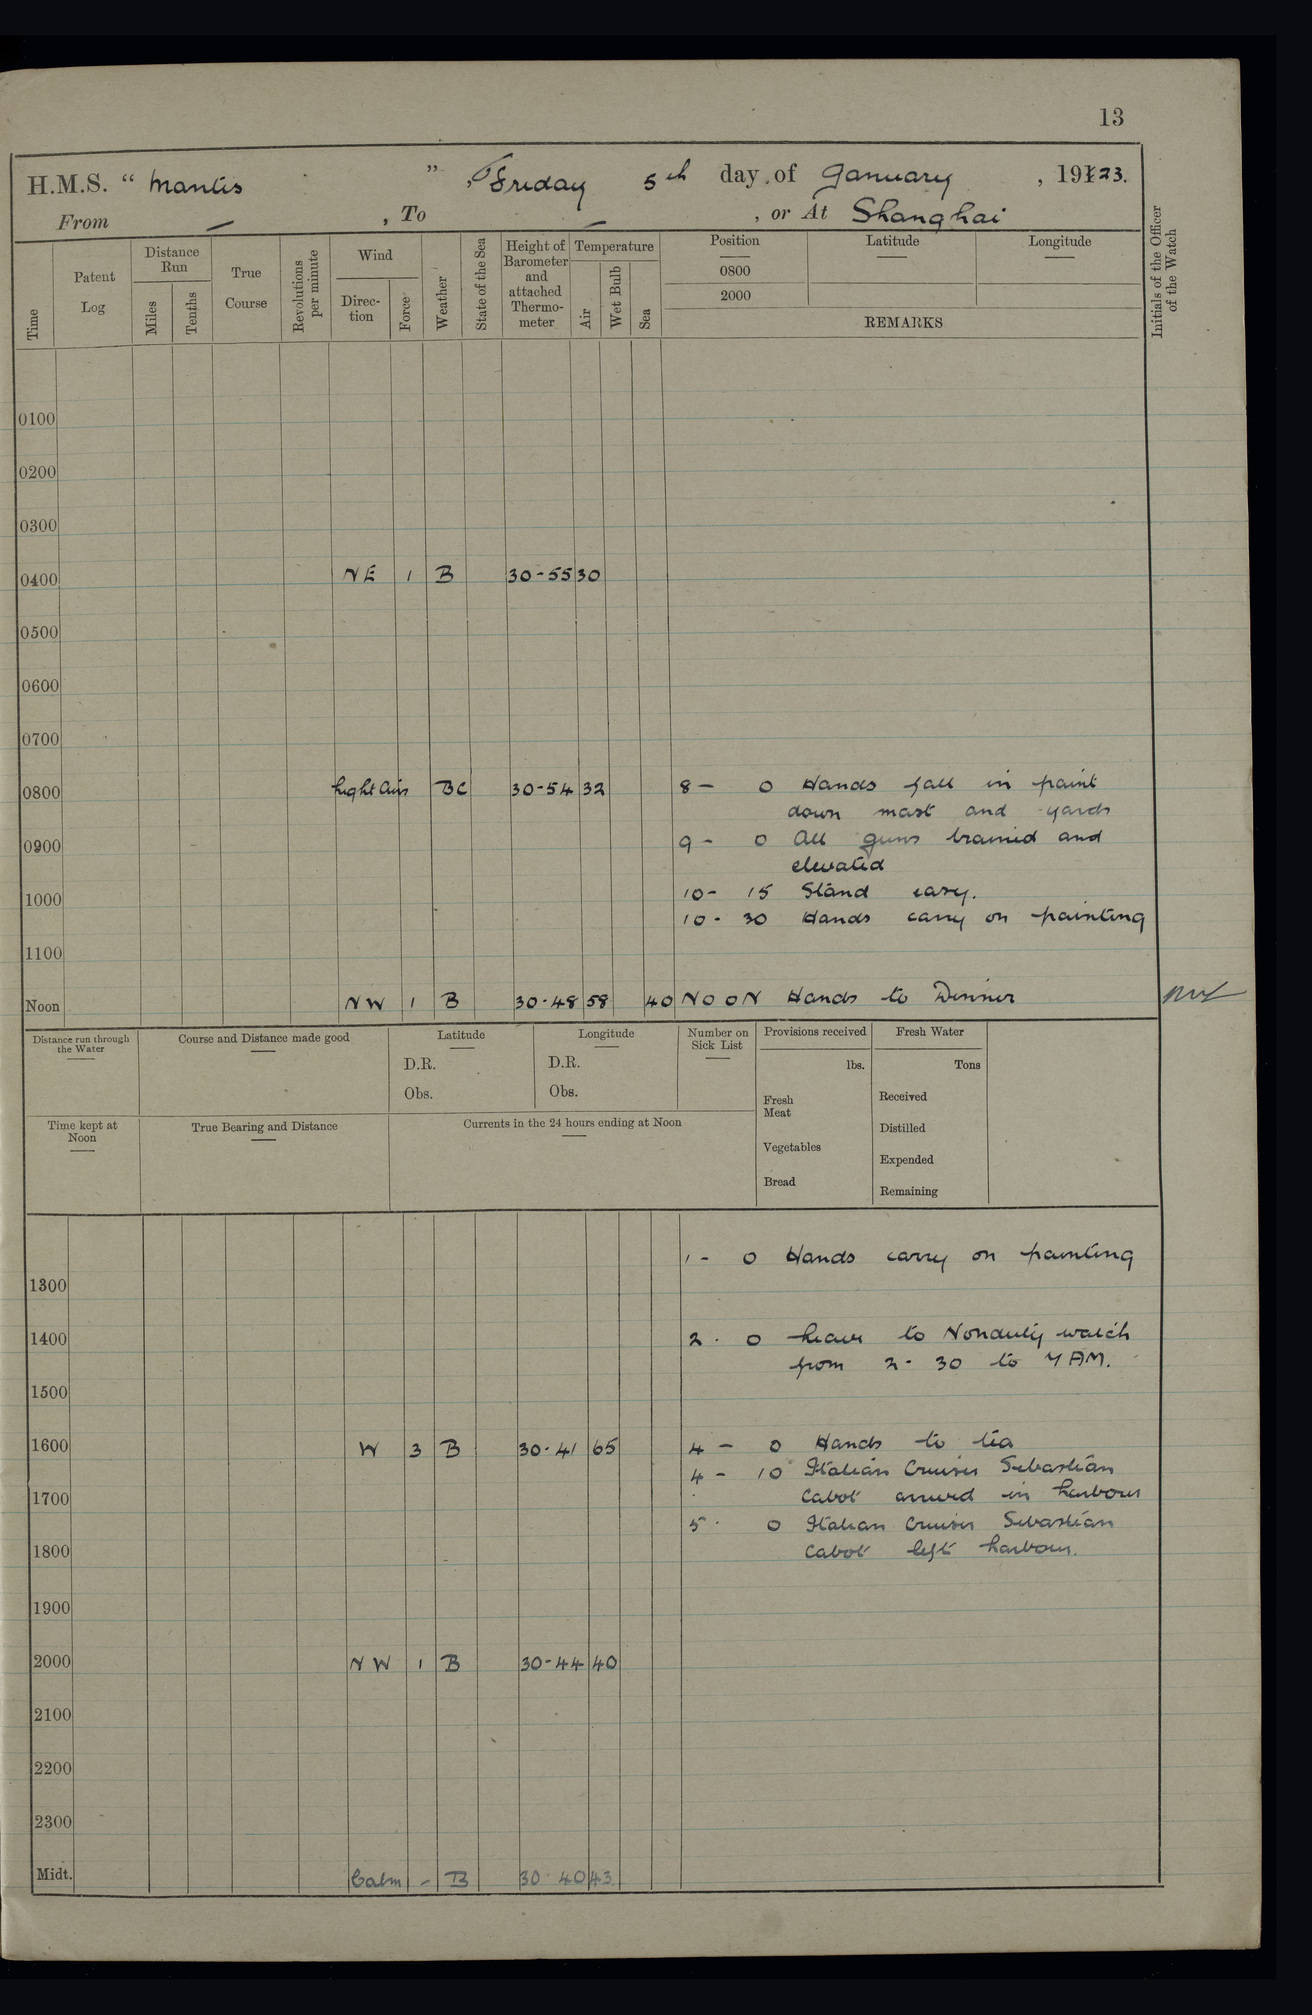 13
H.M.S. “ Mantis ” , Friday 5th day of January , 1923.
From — , To — , or At Shanghai
Time
Patent Log
Distance Run
Miles
Tenths
True Course
Revolutions per minute
Wind
Direc- tion
Force
Weather
State of the Sea
Height of Barometer and attached Thermo- meter
Temperature
Air
Wet Bulb
Sea
Position
0800
2000
Latitude
Longitude
REMARKS
Initials of the Officer of the Watch
0100
0200
0300
0400 NE 1 B 30-55 30
0500
0600
0700
0800 Light Airs BC 30-54 32 8 - 0 Hands fall in paint
down mast and yards
0900 9 - 0 All guns trained and
elevated
1000 10 - 15 Stand easy.
10 - 30 Hands carry on painting
1100
Noon NW 1 B 30-48 58 40 NOON Hands to Dinner
Distance run through the Water
Course and Distance made good
Latitude
D.R.
Obs.
Longitude
D.R.
Obs.
Number on Sick List
Provisions received
lbs.
Fresh Meat
Vegetables
Bread
Fresh Water
Tons
Received
Distilled
Expended
Remaining
Time kept at Noon
True Bearing and Distance
Currents in the 24 hours ending at Noon
1 - 0 Hands carry on painting
1300
1400 2 . 0 Leave to Nonduty watch
from 2 - 30 to 7 AM.
1500
1600 W 3 B 30-41 65 4 - 0 Hands to tea
4 - 10 Italian Cruiser Sebastian
1700 Cabot arrived in harbour
5 . 0 Italian Cruiser Sebastian
1800 Cabot left harbour.
1900
2000 NW 1 B 30-44 40
2100
2200
2300
Midt. Calm - B 30 40 43